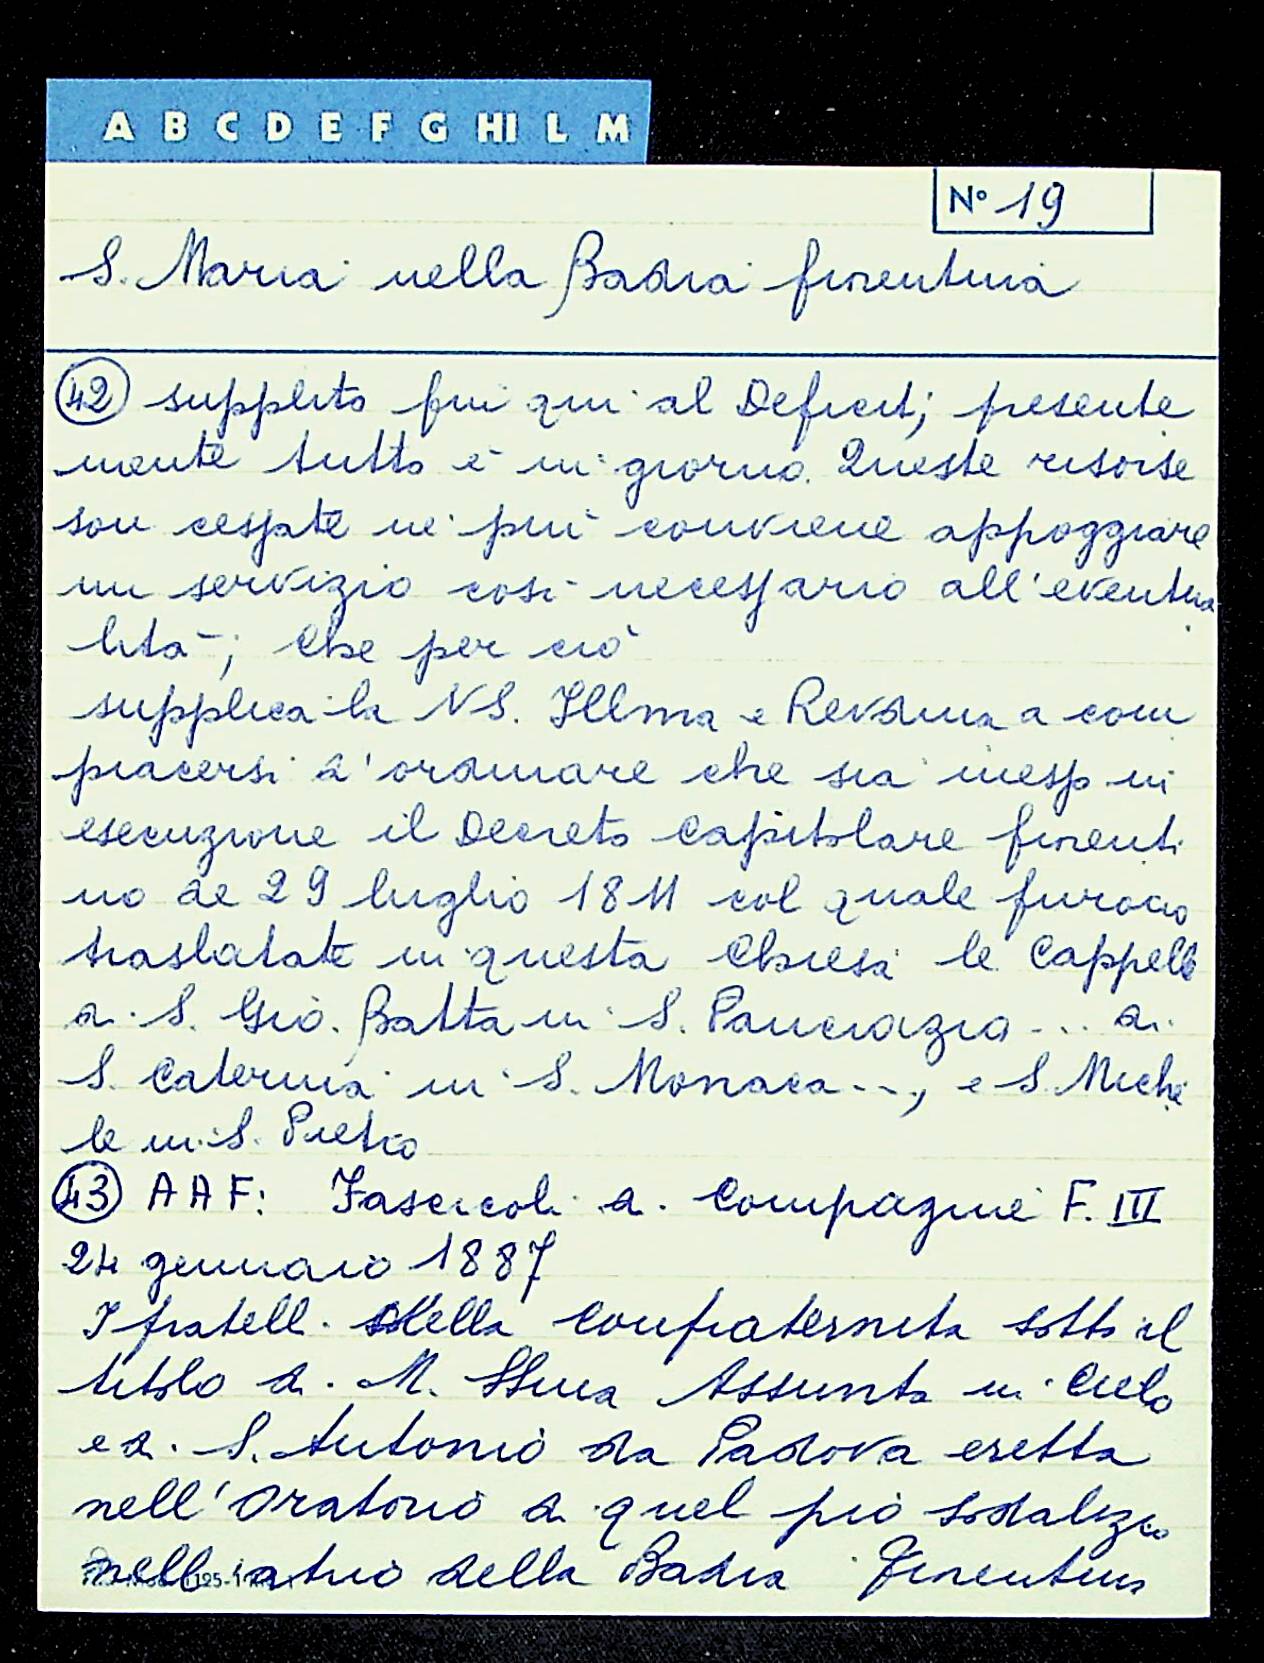 A B C D E F G HI L M
N° 19
S. Maria nella Badia fiorentina
42 supplito fin qui al Deficit; presente
mente tutto è in giorno. Queste risorse
son cessate nè più conviene appoggiare
un servizio così necessario all'eventua
lità; Che per ciò
supplica la VS. Illma e Revdma a com
piacersi d'ordinare che sia messo in
esecuzione il Decreto Capitolare fiorenti
no de 29 luglio 1811 col quale furono
traslatate in questa Chiesa le Cappelle
di S. Giò. Batta in S. Pancrazio ... di
S. Caterina in S. Monaca ..., e S. Miche
le in S. Pietro
43 AAF: Fascicoli di Compagnie F. III
24 gennaio 1887
I fratelli della Confraternita sotto il
titolo di M. SSma Assunta in Cielo
e di S. Antonio da Padova eretta
nell'Oratorio di quel pio sodalizio
nell'atrio della Badia Fiorentina